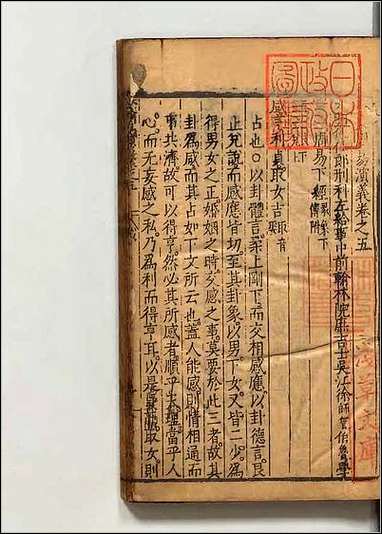 易演義卷之五
郎刑科左給事中前翰林院庶吉士吳江徐師曾伯魯學
周易下經
咸亨利貞取女吉
占也○以卦體言柔上剛下而交相感應以卦德言艮
止兌說而感應皆切至其卦象以男下女又皆二少為
得男女之正婚姻之時交感之事莫要於此三者故其
卦為咸而其占如下文所云也蓋人能感則情相通而
事共濟故可以得亨然必其所感者順乎天理當乎人
心而无妄感之私乃為利而得亨耳以是取女則